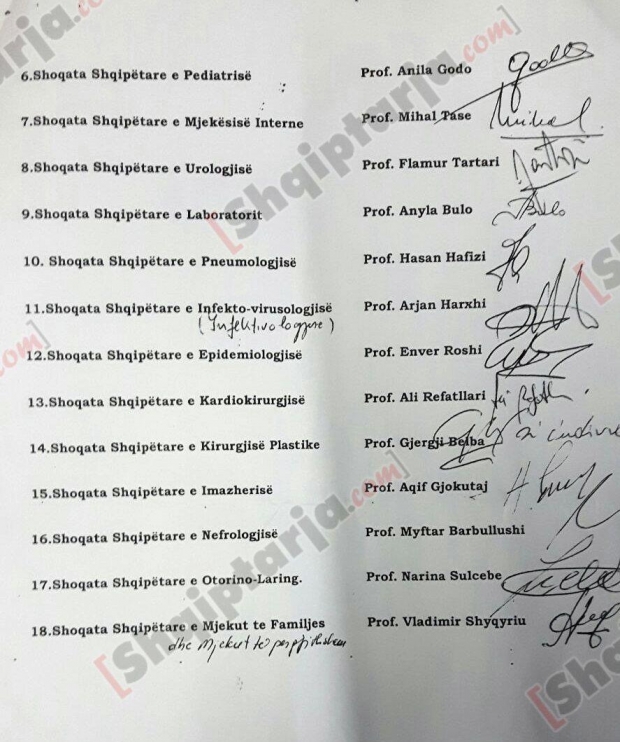 6.Shoqata Shqipëtare e Pediatrisë Prof. Anila Godo
7.Shoqata Shqipëtare e Mjekësisë Interne Prof. Mihal Tase
8.Shoqata Shqipëtare e Urologjisë Prof. Flamur Tartari
9.Shoqata Shqipëtare e Laboratorit Prof. Anyla Bulo
10. Shoqata Shqipëtare e Pneumologjisë Prof. Hasan Hafizi
11.Shoqata Shqipëtare e Infekto-virusologjisë Prof. Arjan Harxhi
12.Shoqata Shqipëtare e Epidemiologjisë Prof. Enver Roshi
13.Shoqata Shqipëtare e Kardiokirurgjisë Prof. Ali Refatllari
14.Shoqata Shqipëtare e Kirurgjisë Plastike Prof. Gjergji Belba
15.Shoqata Shqipëtare e Imazherisë Prof. Aqif Gjokutaj
16.Shoqata Shqipëtare e Nefrologjisë Prof. Myftar Barbullushi
17.Shoqata Shqipëtare e Otorino-Laring. Prof. Narina Sulcebe
18.Shoqata Shqipëtare e Mjekut te Familjes Prof. Vladimir Shyqyriu
dhe Mjekut të
[Shqiptarja.com]